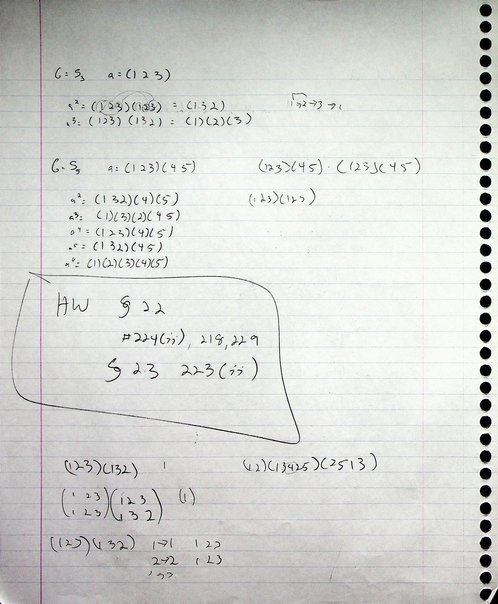 G = S₃ a = (1 2 3)
a² = (1 2 3)(1 2 3) = (1 3 2) 1→2→3→1
a³ = (1 2 3) (1 3 2) = (1)(2)(3)
G = S₅ a = (1 2 3)(4 5) (1 2 3)(4 5) · (1 2 3)(4 5)
a² = (1 3 2)(4)(5) (1 2 3)(1 2 3)
a³ = (1)(3)(2)(4 5)
a⁴ = (1 2 3)(4)(5)
a⁵ = (1 3 2)(4 5)
a⁶ = (1)(2)(3)(4)(5)
HW § 2.2
#224(ii), 218, 229
§ 2.3 223(ii)
(1 2 3)(1 3 2) 1 (1 2)(1 3 4 2 5)(2 5 1 3)
(1 2 3)(1 2 3) (1)
(1 2 3)(1 3 2)
(1 2 3)(1 3 2) 1→1 1 2 3
2→2 1 2 3